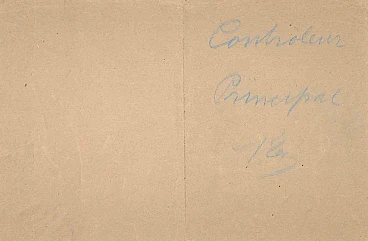 Contrôleur
Principal